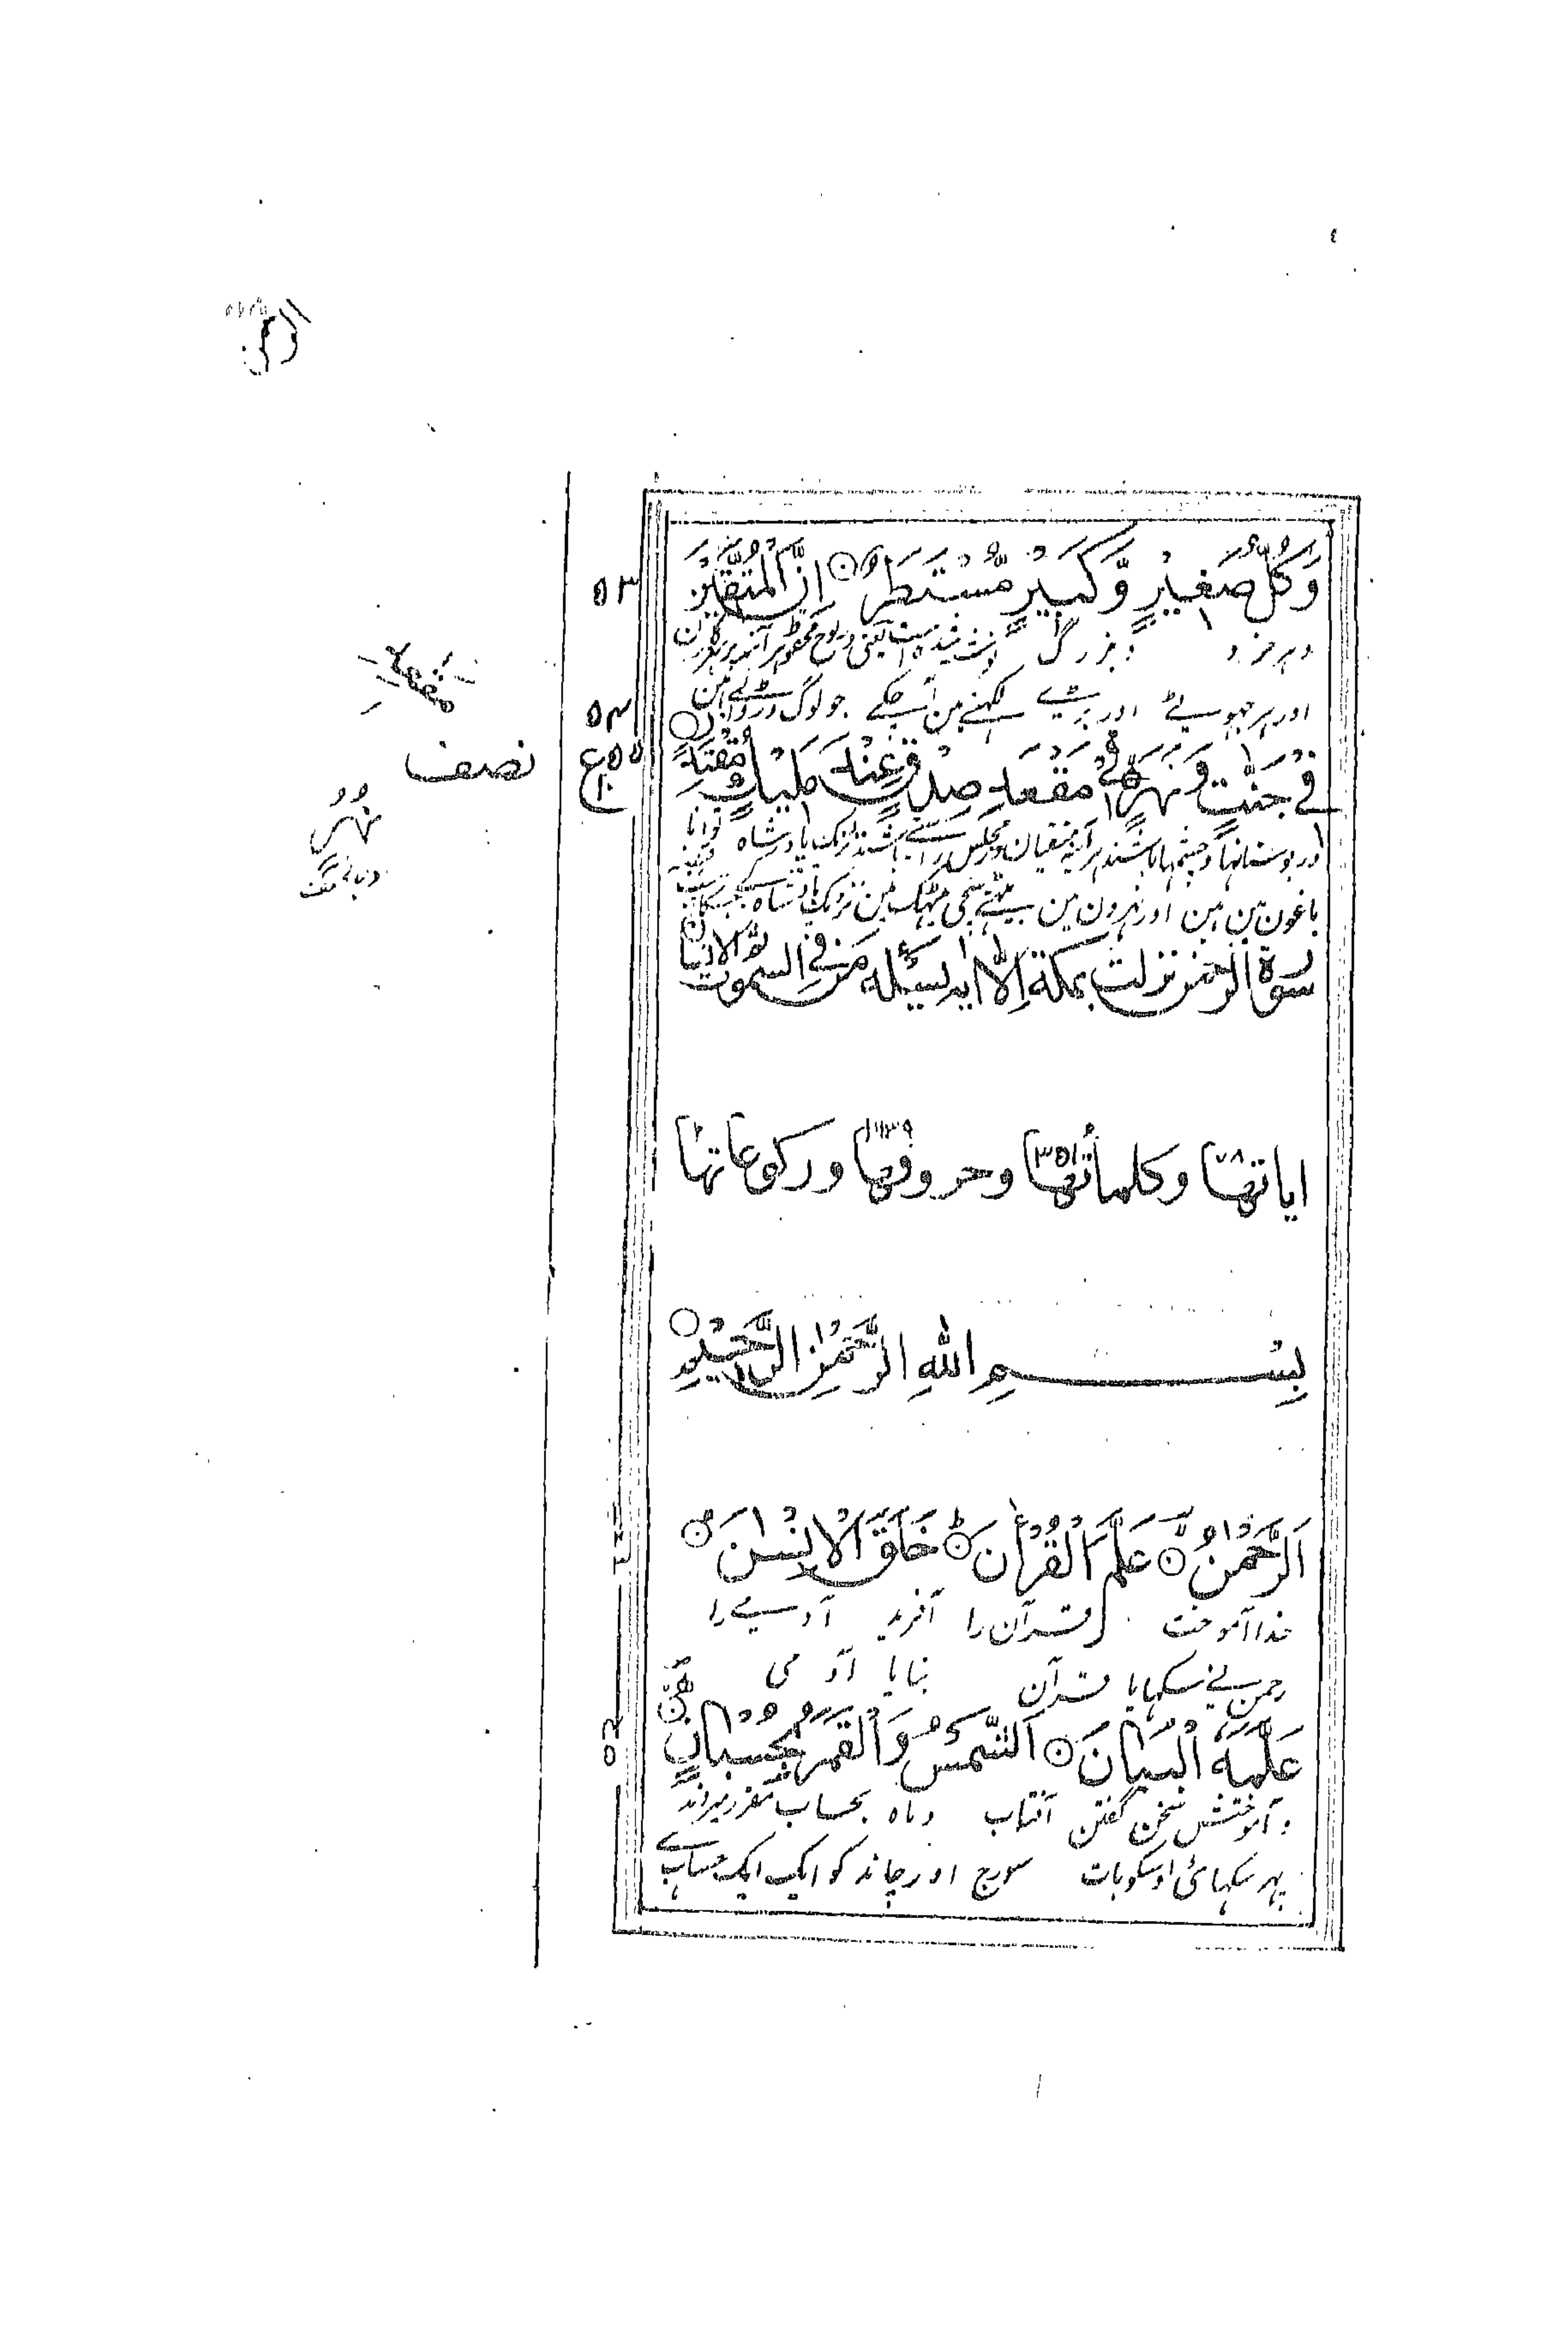 الرحمن
وَكُلُّ صَغِيْرٍ وَّكَبِيْرٍ مُّسْتَطَرٌ ۝ اِنَّ الْمُتَّقِيْنَ
۵۳
و ہر خرد و بزرگ نوشتہ شدہ است یعنی در لوح محفوظ ہر آئنہ پرہیزگاران
اور ہر چھوٹے اور بڑے لکھنے مین آچکے جو لوگ ڈر والے ہین
۵۴
فِيْ جَنّٰتٍ وَّنَهَرٍ ۝ فِيْ مَقْعَدِ صِدْقٍ عِنْدَ مَلِيْكٍ مُّقْتَدِرٍ ۝
۵۵ ع
۱۰
مقعد
نصف
نهر
در بوستانها و چشمها باشند در مجلس راستے باشند نزدیک پادشاہ توانا
باغون مین ہین اور نہرون مین بیٹھے سچی بیٹھک مین نزدیک پادشاہ کے
سورة الرحمن نزلت بمكة الا اية يسئله من في السموت
اياتها ۷۸ وكلماتها ۳۵۱ وحروفها وركوعاتها ۳
بِسْمِ اللهِ الرَّحْمٰنِ الرَّحِيْمِ ۝
اَلرَّحْمٰنُ ۝ عَلَّمَ الْقُرْاٰنَ ۝ خَلَقَ الْاِنْسٰنَ ۝
خدا آموخت قرآن را آفرید آدمے را
رحمن نے سکہایا قرآن بنایا آدمی
عَلَّمَهُ الْبَيَانَ ۝ اَلشَّمْسُ وَالْقَمَرُ بِحُسْبَانٍ ۝
و آموختش سخن گفتن آفتاب و ماہ بحساب مقرر میروند
پہر سکہائی اوسکو بات سورج اور چاند کو ایک ایک حساب ہے